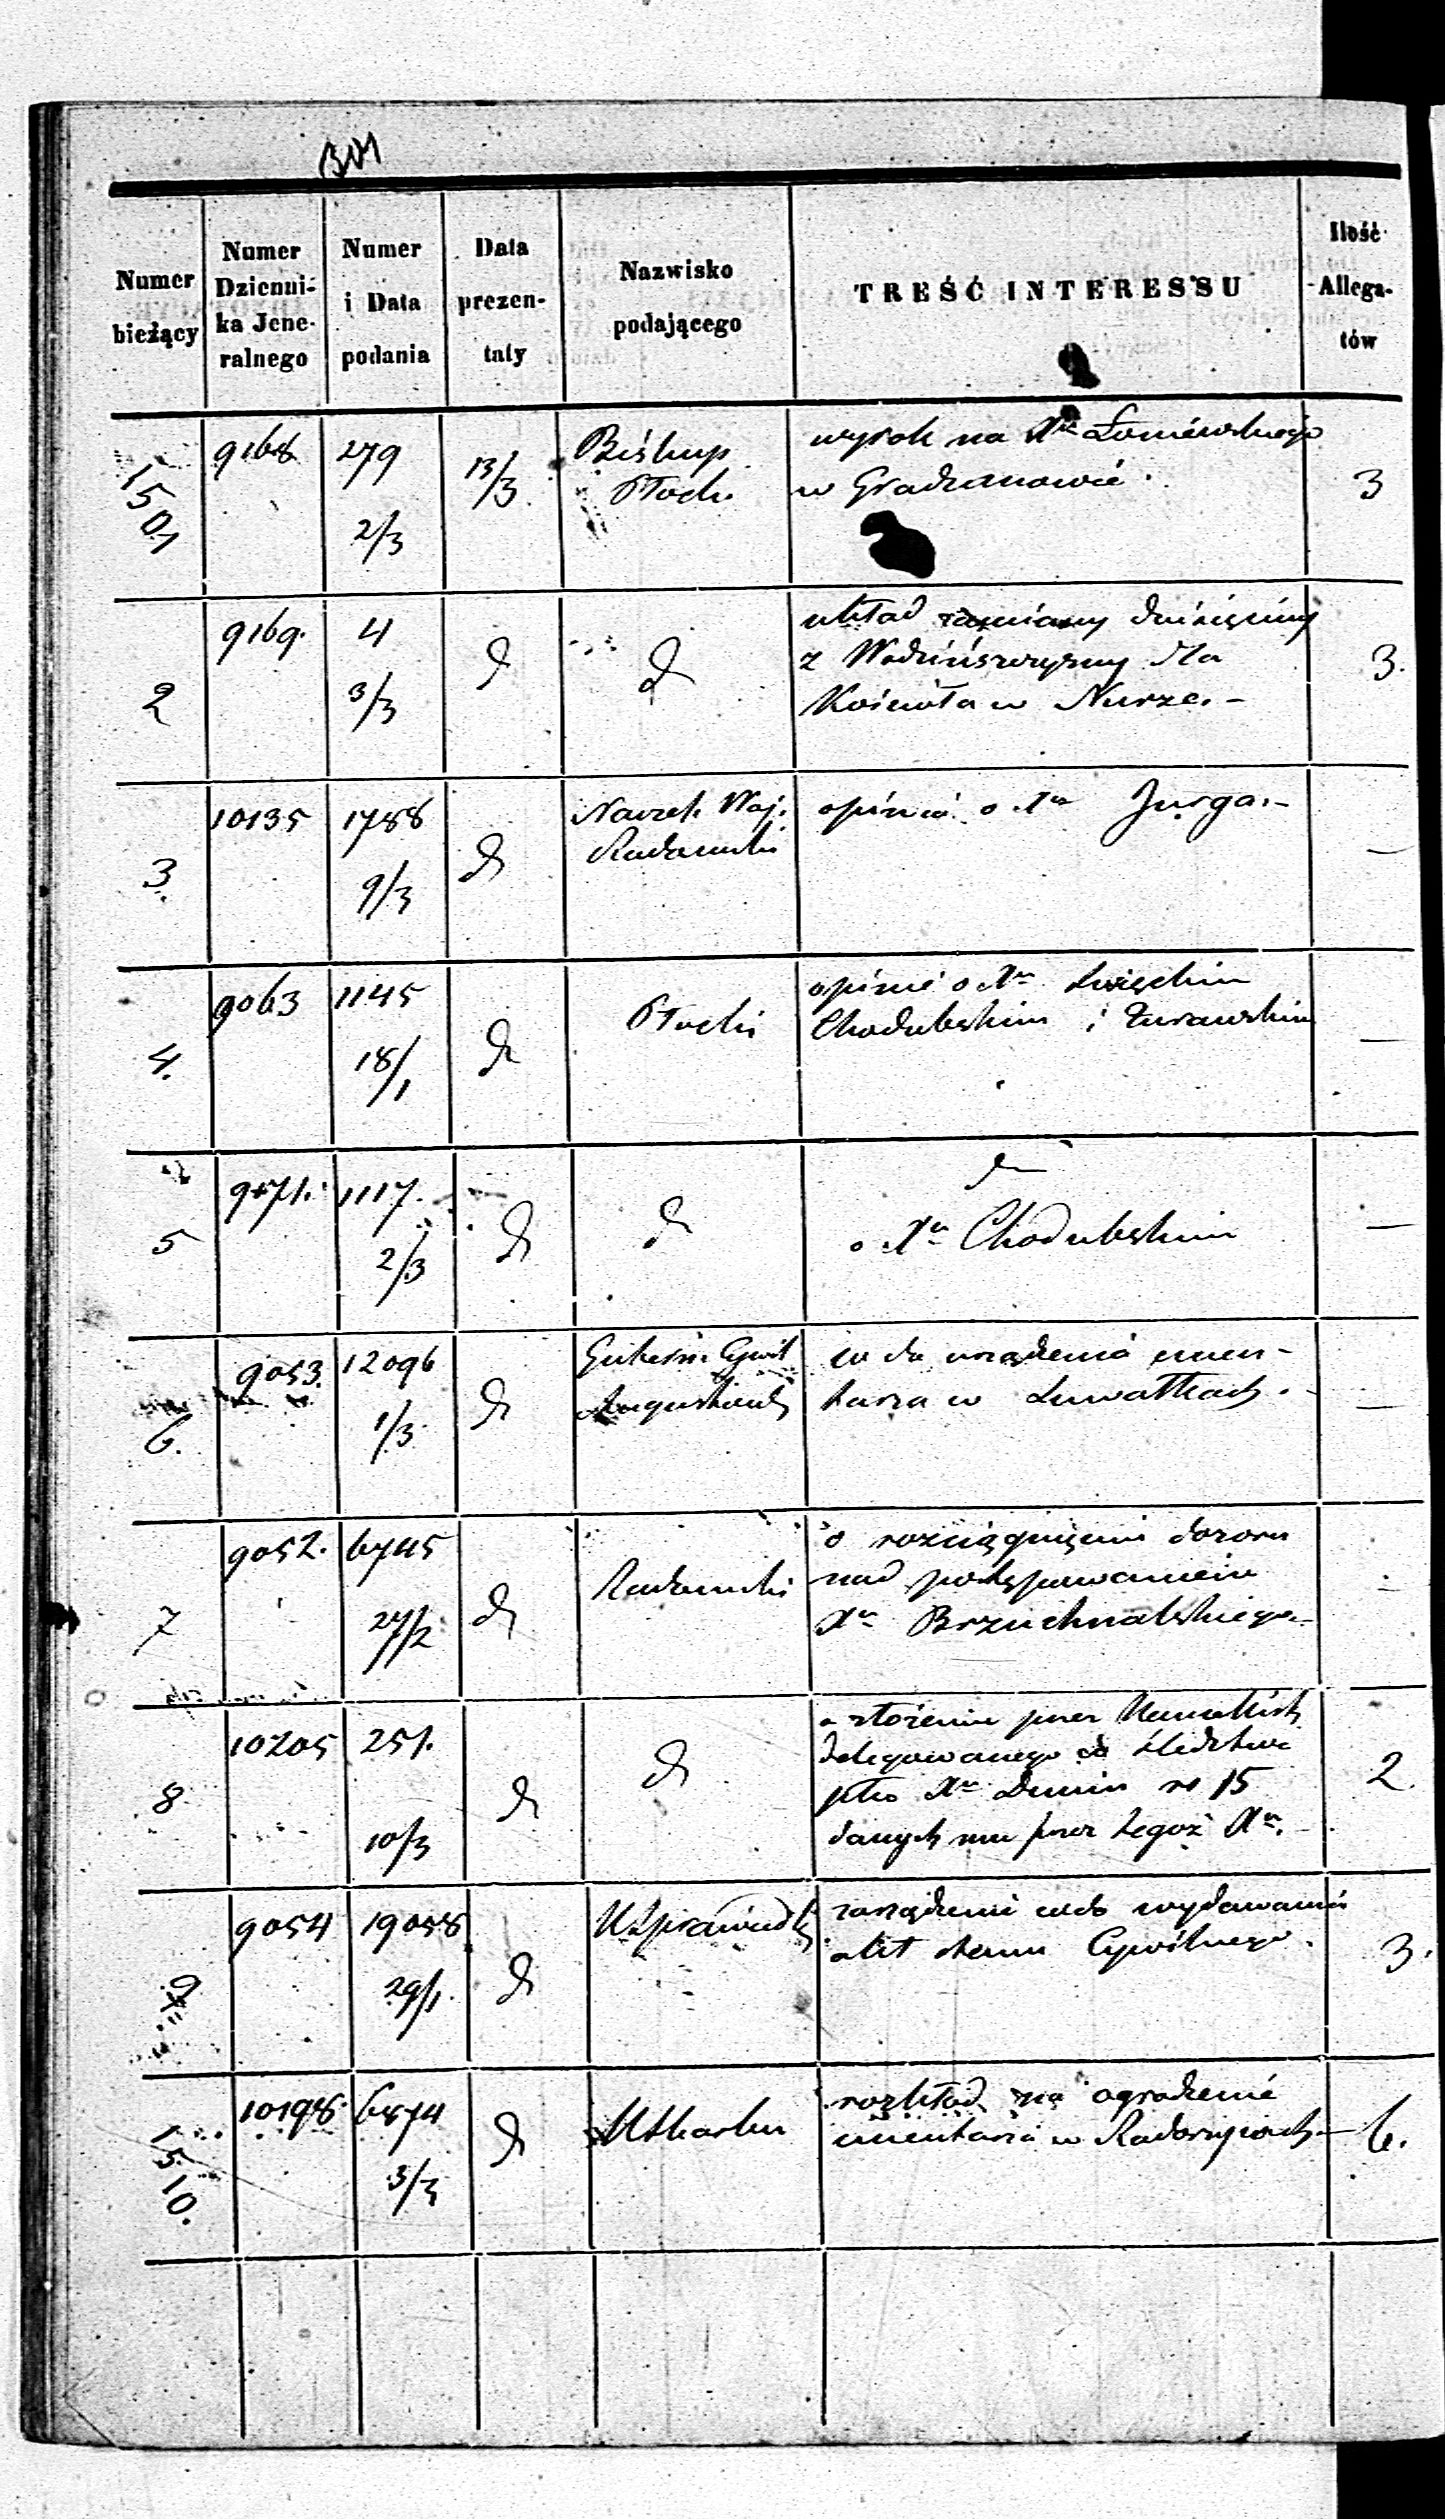 301
Numer bieżący
Numer Dzienni-ka Jene-ralnego
Numer i Data podania
Data prezen-taty
Nazwisko podającego
TREŚĆ INTERESSU
Ilość Allega-tów
1501
9168
279
2/3
13/3
Biskup
Płock.
wyrok na Xa Łoniewskiego
w Gradzanowie
3
2
9169.
4
3/3
d
d
układ zamiany dziesięciny
z Wodzińszczyzny dla
Kościoła w Nurze. -
3.
3.
10135
1788
9/3
d
Naczel. Woj.
Radomski
opinia o Xu Jurga. -
—
4.
9063
1145
18/1
d
Płocki
opinie o Xu
Chodubskim i Żurawskim
—
5
9471.
1117.
2/3
d
d
d
o Xu Chodubskim
—
6.
9053.
12096
1/3
d
Gubern. Cywil
Augustowski
co do urządzenia cmen-
tarza w Suwałkach. -
—
7
9052.
6745
27/2
d
Radomski
o rozciągnięciu dozoru
nad postępowaniem
Xa Brzuchnalskiego. -
—
8
10205
251.
10/3
d
d
o złożeniu przez
delegowanego do śledztwa
pko Xu Dunin rs 15
danych mu przez tegoż Xa. -
2.
9
9054
19058
29/1.
d
K Sprawiedl
zarządzenie wzb wydawania
akt stanu Cywilnego.
3.
1510.
10198.
6874
3/3
d
K Skarbu
rozkład na ogrodzenie
cmentarza w -
6.